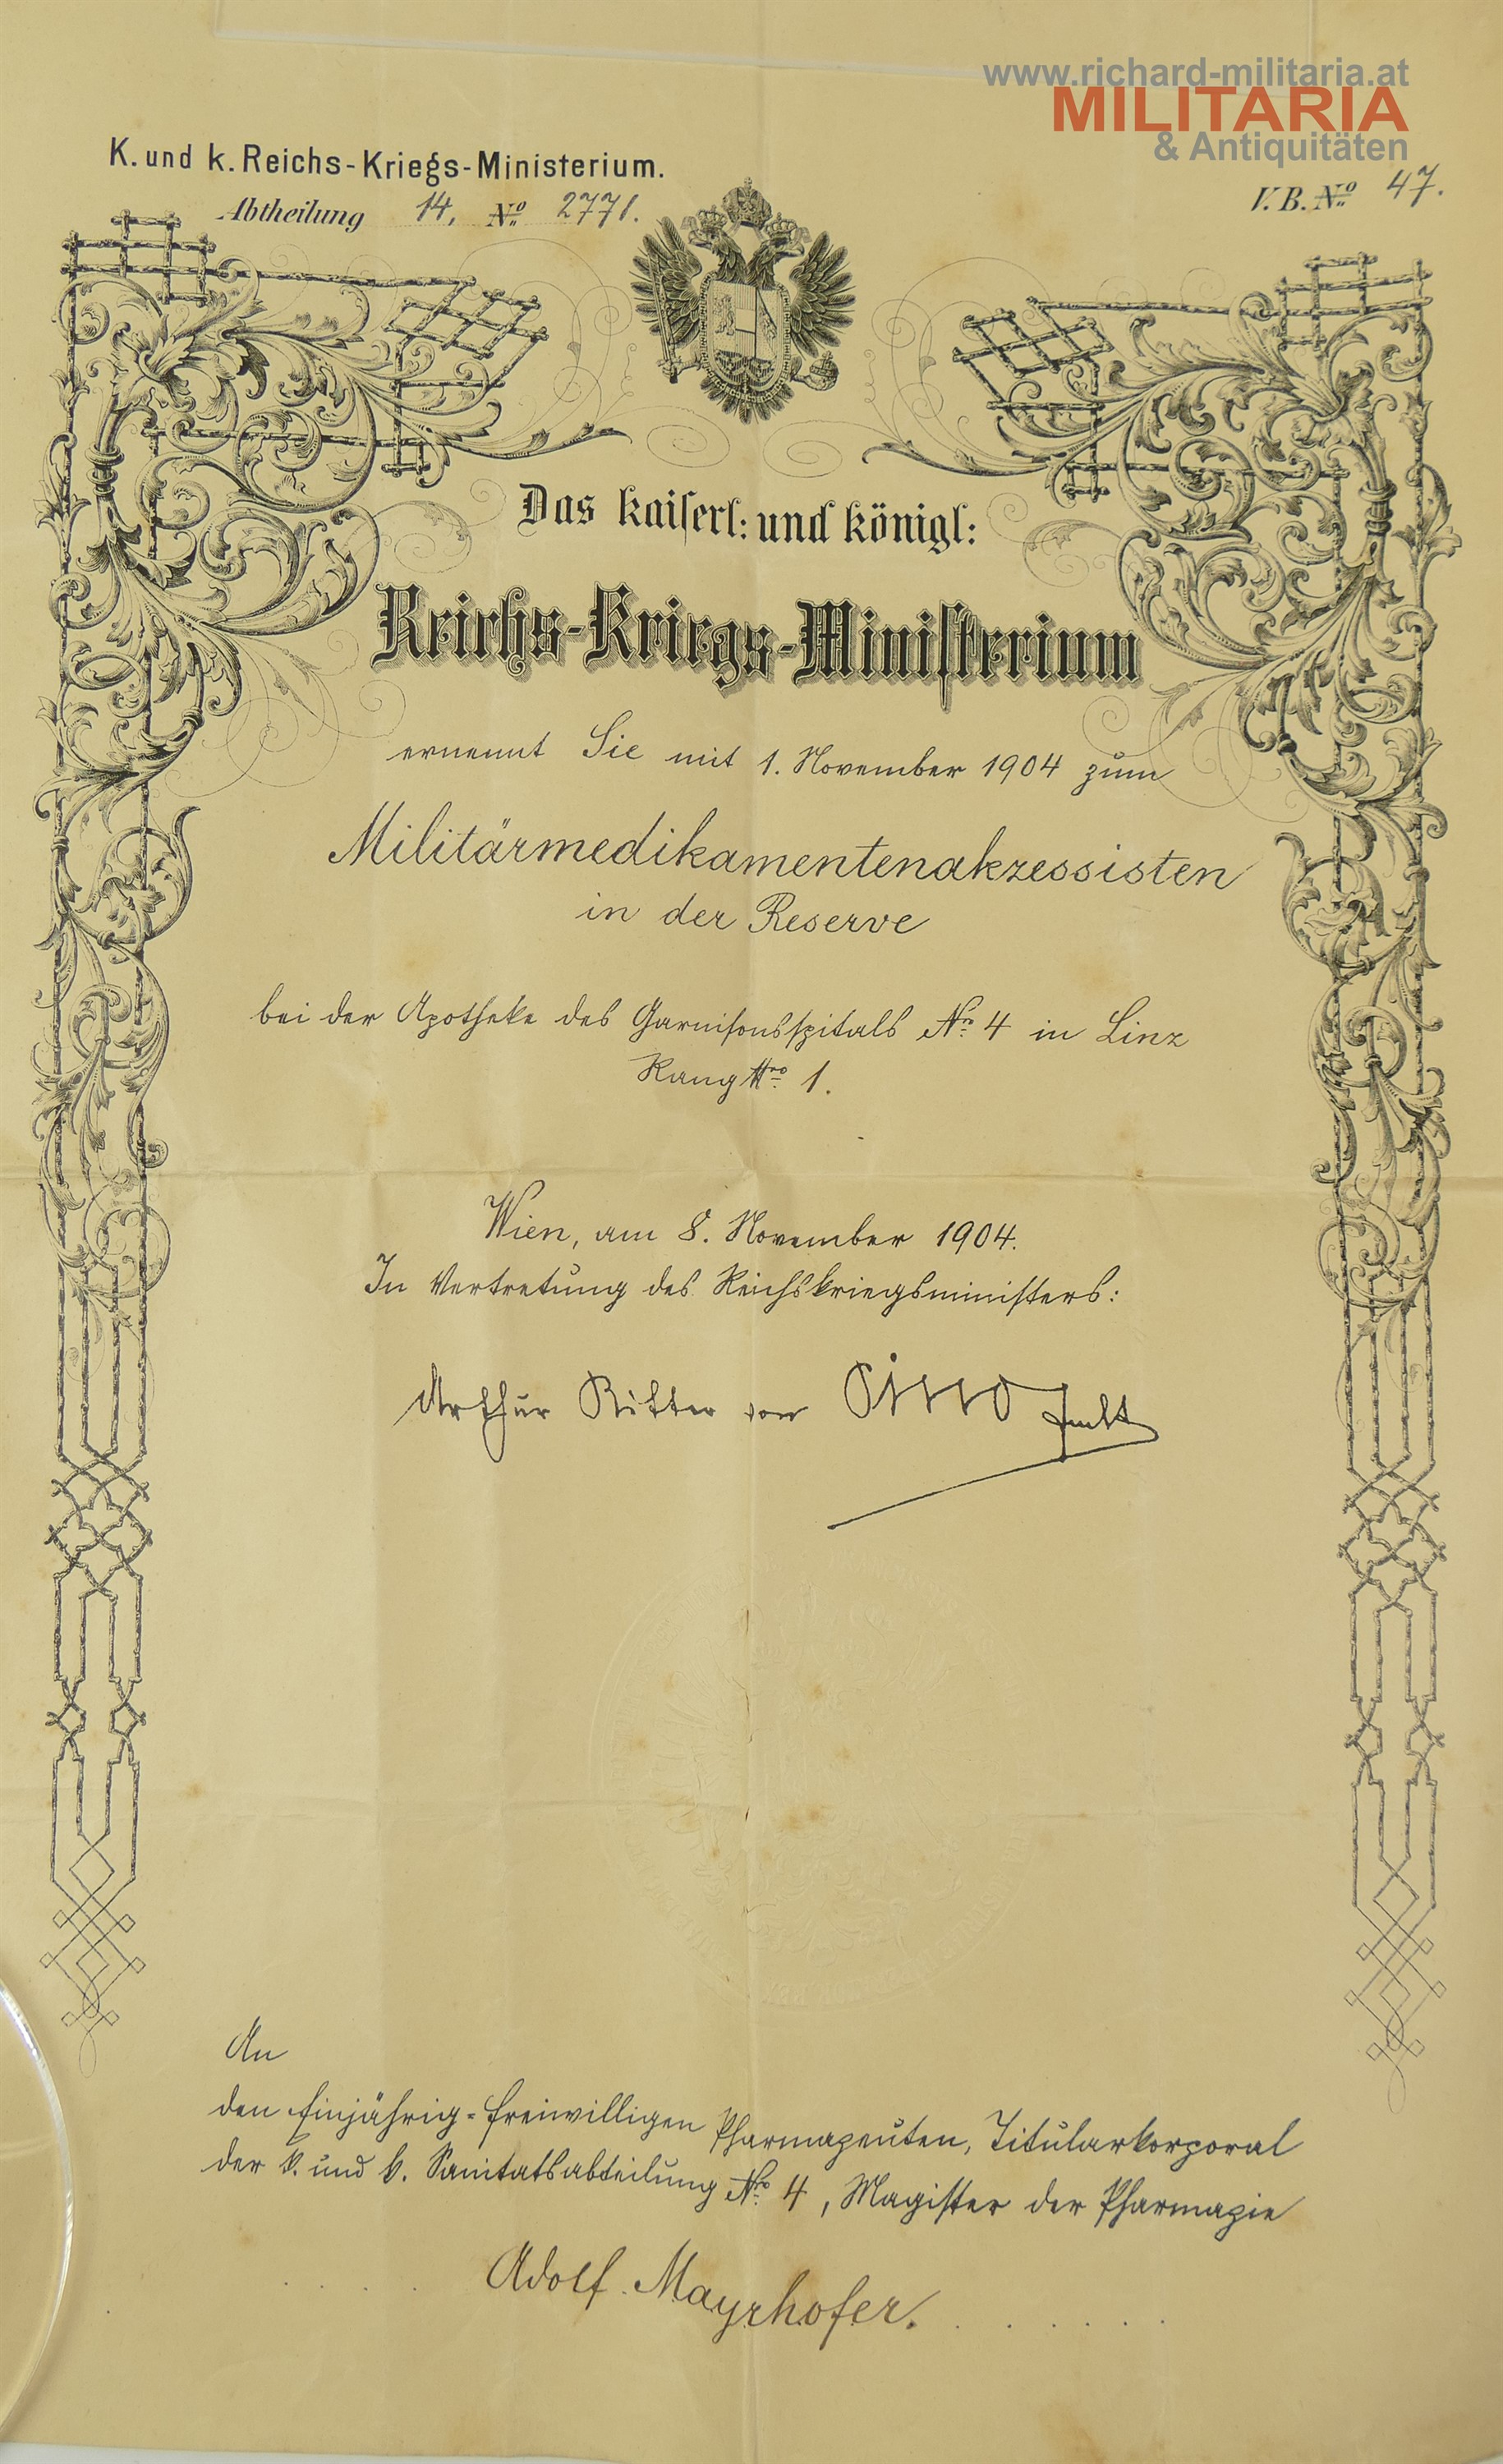 www.richard-militaria.at
MILITARIA
& Antiquitäten
K. und k. Reichs-Kriegs-Ministerium.
Abtheilung 14, No 2771.
V. B. No 47.
Das kaiserl: und königl:
Reichs-Kriegs-Ministerium
ernennt Sie mit 1. November 1904 zum
Militärmedikamentenakzessisten
in der Reserve
bei der Apotheke des Garnisonsspitals Nr. 4 in Linz
Rang Nro 1.
Wien, am 8. November 1904.
In Vertretung des Reichskriegsministers:
Arthur Ritter von Pino
An
den Einjährig-Freiwilligen Pharmazeuten, Titularkorporal
der k. und k. Sanitätsabteilung Nr. 4, Magister der Pharmazie
Adolf Mayrhofer.